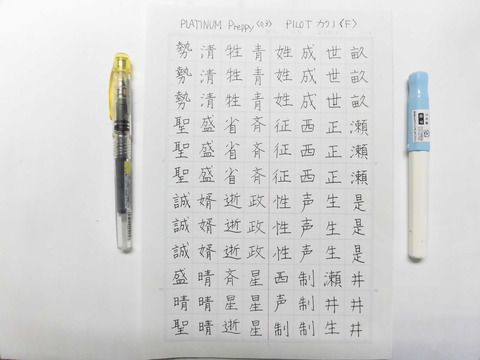 PLATINUM Preppy <03> PILOT カクノ <F>
畝畝畝瀬瀬瀬是是是井井井
世世世正正正生生生瀬井生
成成成西西西声声声制制制
姓姓姓征征征性性性西声制
青青青斉斉斉政政政星星星
牲牲牲省省省逝逝逝斉星逝
清清清盛盛盛婿婿婿晴晴晴
勢勢勢聖聖聖誠誠誠盛晴聖